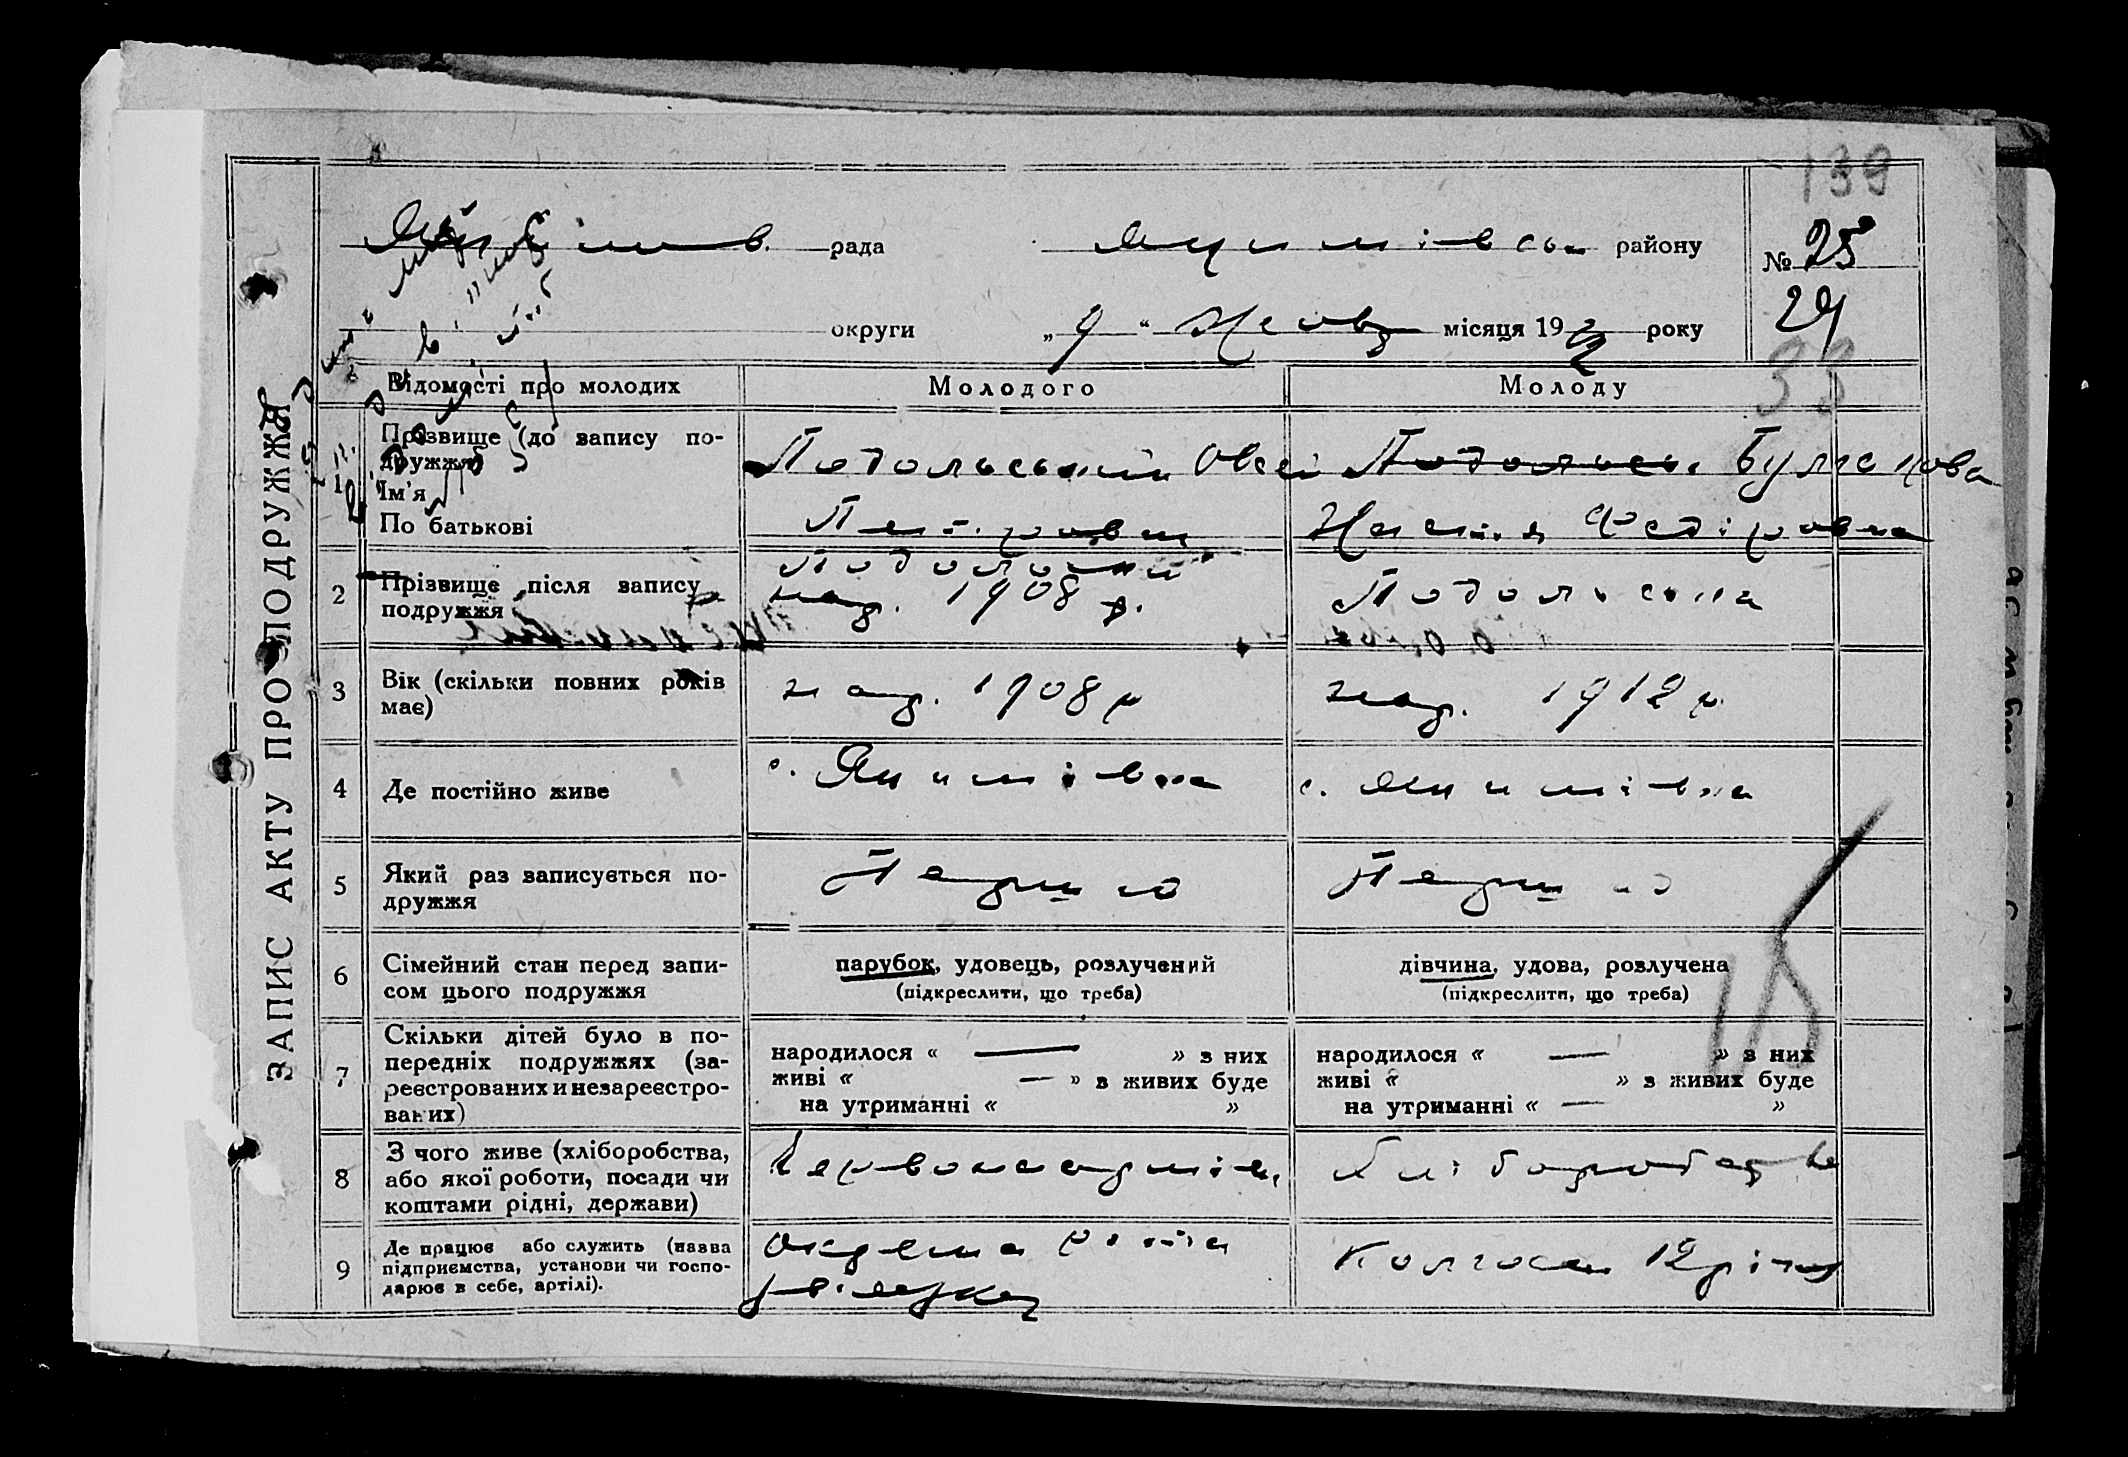 139
рада
районy
№ 25
29
округи
„ 9 “ місяця 19 року
33
ЗАПИС АКТУ ПРО ПОДРУЖЖЯ
Відомості про молодих
Молодого
Молоду
1
Прізвище (до запису по-
дружжя)
Ім'я
По батькові
Подольський Овсі
Петрович
Подольсь. Булгакова
Федіровна
2
Прізвище після запису
подружжя
Подольский
нар. 1908 р.
Подольська
3
Вік (скільки повних років
має)
нар. 1908 р
нар. 1912 р.
4
Де постійно живе
с. Якимівка
с. Якимівка
5
Який раз записується по-
дружжя
Перший
Перший
6
Сімейний стан перед запи-
сом цього подружжя
парубок, удовець, розлучений
(підкреслити, що треба)
дівчина, удова, розлучена
(підкреслити, що треба)
7
Скільки дітей було в по-
передніх подружжях (за-
реєстрованих и незареєстро-
ваних)
народилося « — » з них
живі « — » з живих буде
на утриманні « »
народилося « — » з них
живі « » з живих буде
на утриманні « — »
8
З чого живе (хліборобства,
або якої роботи, посади чи
коштами рідні, держави)
Червоноармієц,
Хліборобство
9
Де працює або служить (назва
підприємства, установи чи госпо-
дарює в себе, артілі).
окрема рота
Колгосп 12 річчя